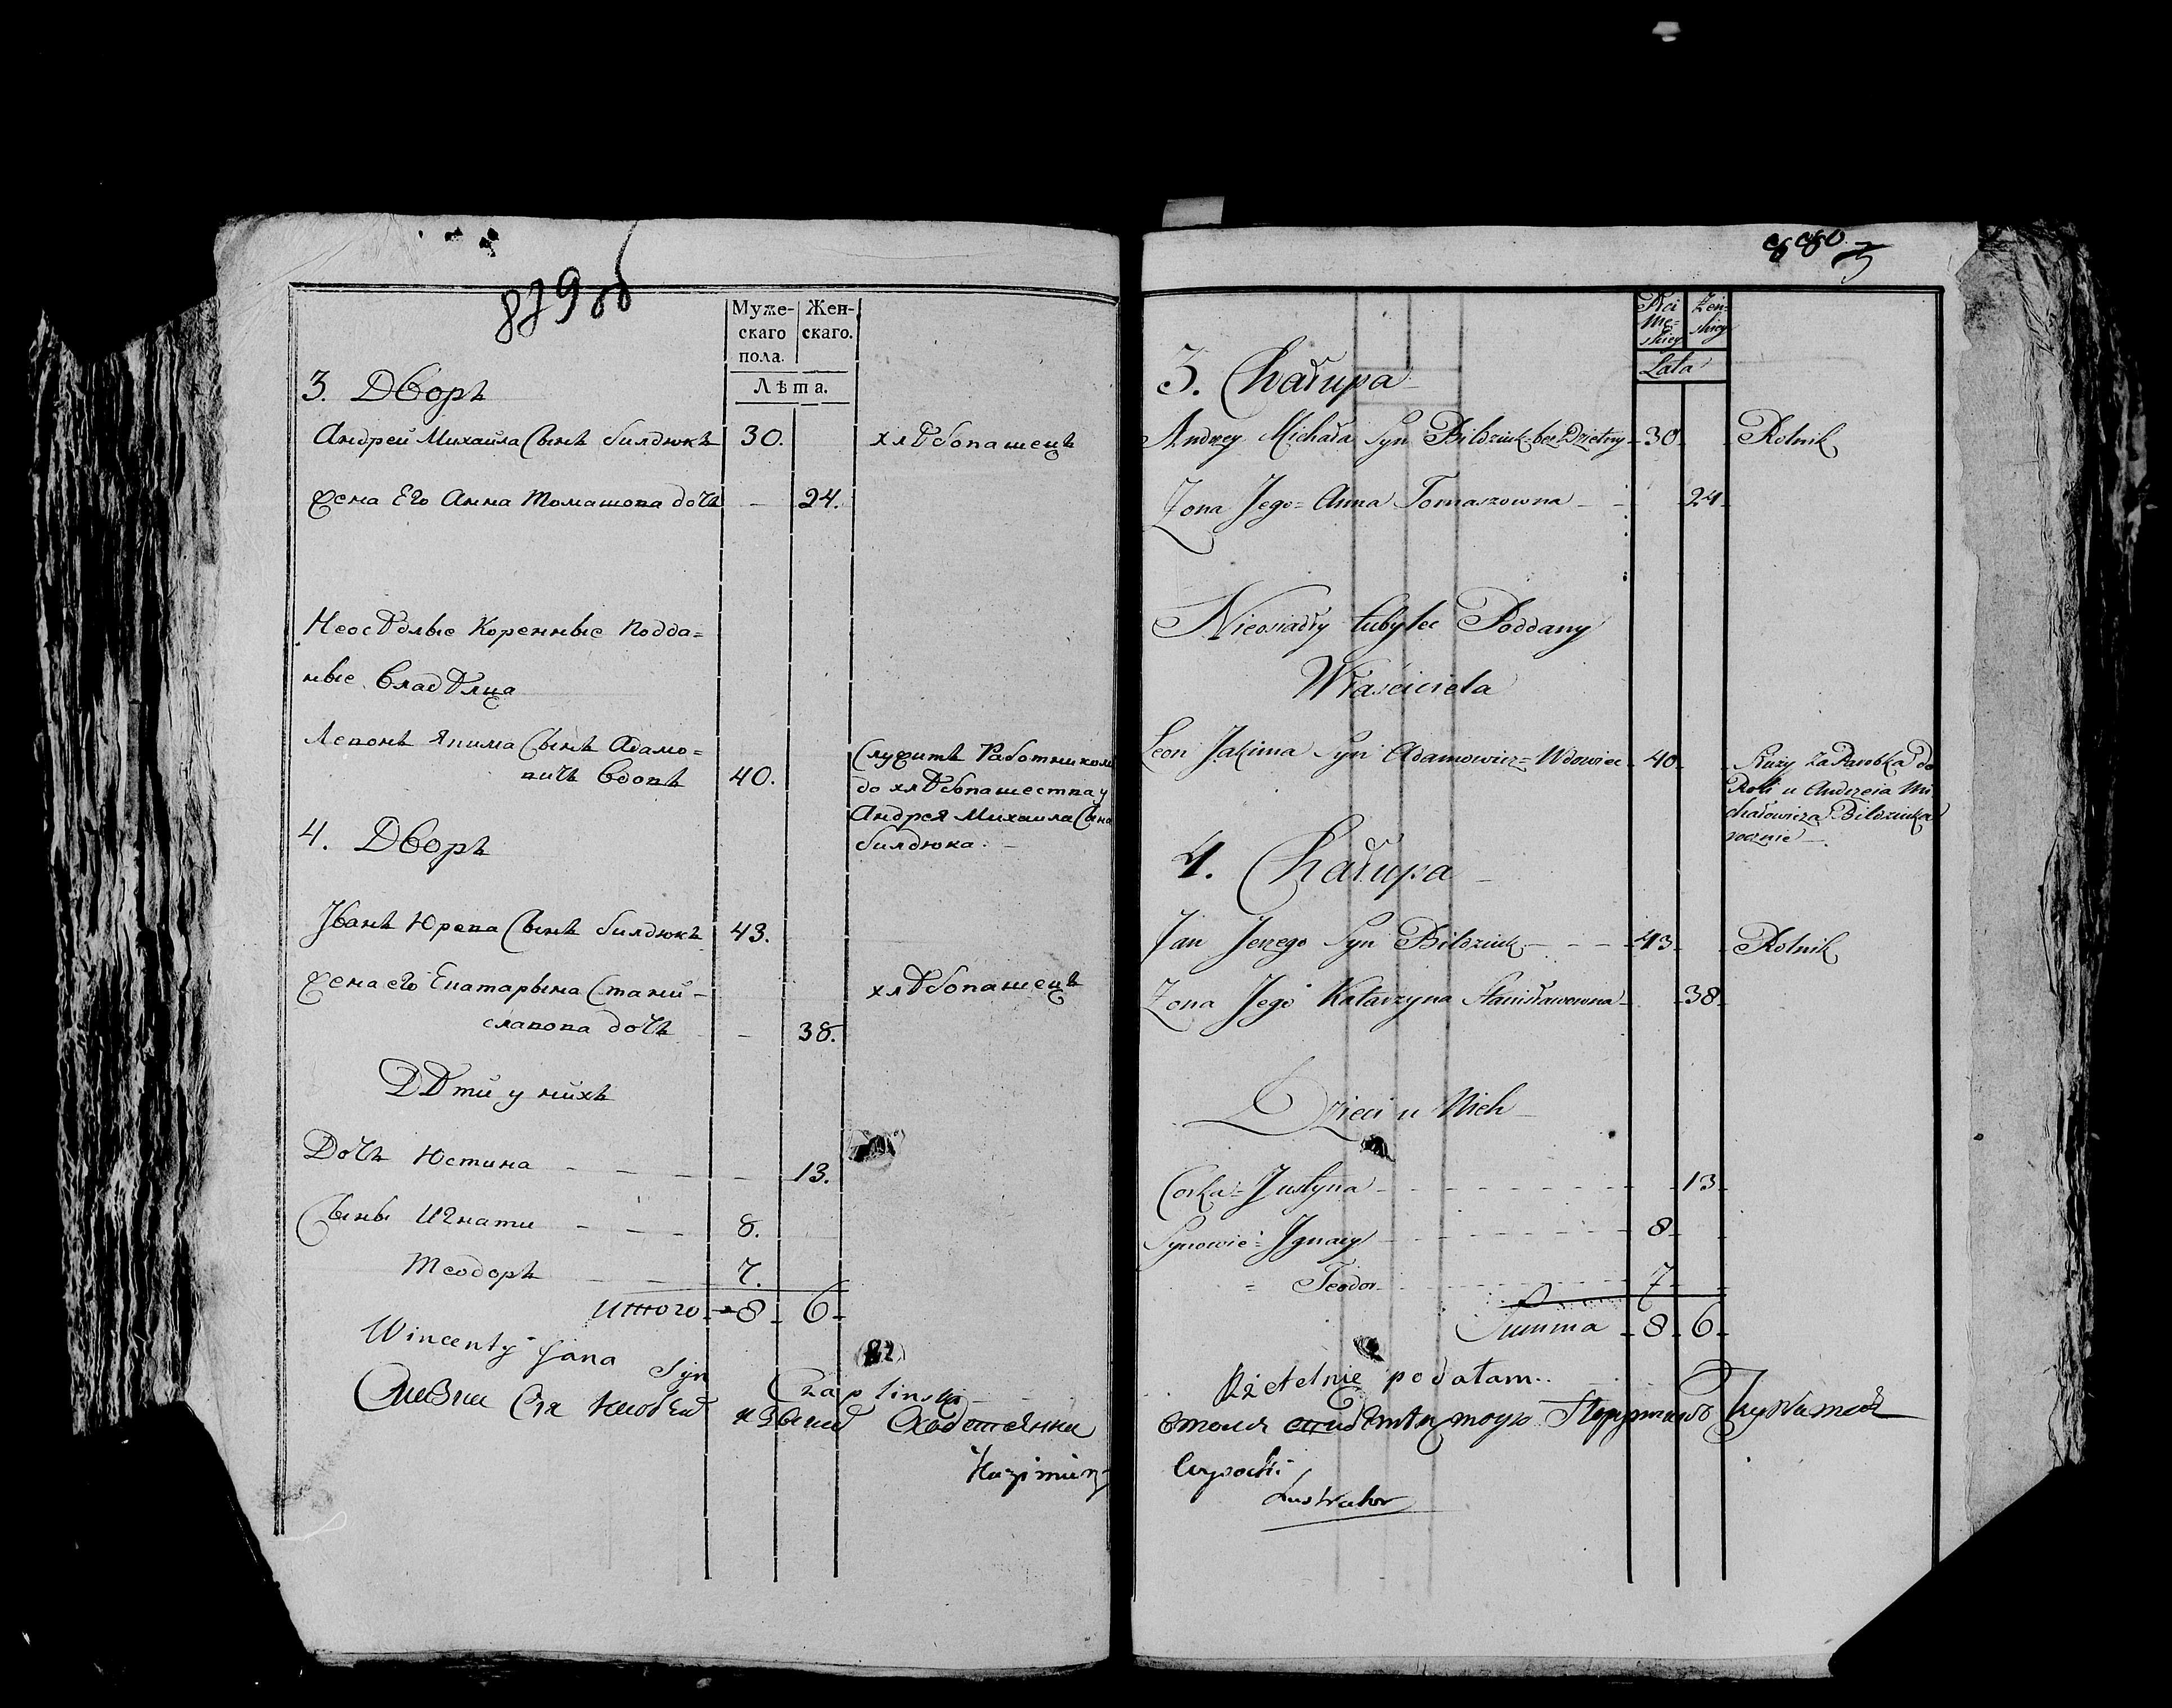 879 об
Муже-
скаго
пола.
Жен-
скаго.
Лѣта.
3. Дворъ
Андрей Михайла Сынъ Билдюкъ 30. хлѣбопашецъ
Жена Его Анна Томашова дочь - 24.
Неосѣдлые Коренные Подда=
ные Владѣлца
Левонъ Якима Сынъ Адамо=
вичь Вдовъ 40.
Служитъ Работником
до хлѣбопашества у
Андрея Михаила Сына
Билдюка.
4. Дворъ
Иванъ Юрева Сынъ Билдюкъ 43.
Жена его Екатарына Стани- хлѣбопашецъ
славова дочь - 38.
Дѣти у нихъ
Дочь Юстина - - - 13.
Сыны Игнати - - - 8.
Теодоръ - - 7.
Итого - 8 - 6 -
Wincenty Jana Syn Czaplinski
Kazimierz
880
Płci
Mę-
skiey
Żeń-
skiey
Lata
3. Chałupa
Andrzey Michała Syn Bildziuk bez Dzietny - 30 - Rolnik
Zona Jego = Anna Tomaszowna - - 24 -
Nieosiadły tubylec Poddany
Właściciela
Leon Jakima Syn Adamowicz = Wdowiec - 40 -
Służy za Parobka do
Roli u Andrzeia Mi
chałowicza Bildziuka
rocznie -.
4. Chałupa
Jan Jerzego Syn Bildziuk - - - 43 - Rolnik
Zona Jego Katarzyna Stanisławowna - - 38 -
Dzieci u Nich
Corka = Justyna - 13 -
Synowie = Jgnacy - 8 -
= Teodor - 7 -
Summa - 8 - 6 -
Rzetelnie podałam..
Wysocki
Lustrator